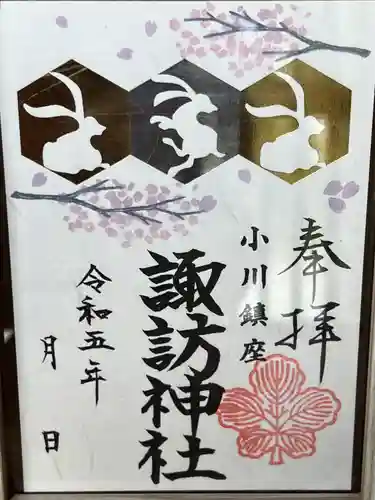 奉拝
小川鎮座
諏訪神社
令和五年
月 日